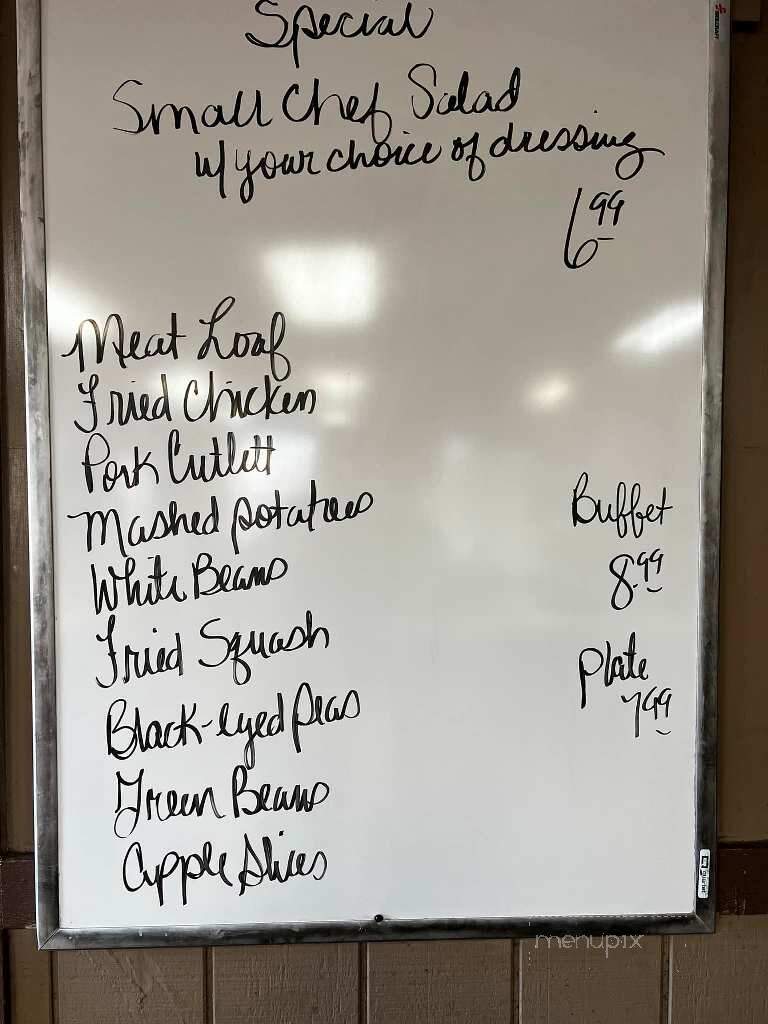 Special
Small Chef Salad
w/ your choice of dressing
6.99
Meat Loaf
Fried Chicken
Pork Cutlett
Mashed potatoes
White Beans
Fried Squash
Black-eyed Peas
Green Beans
Apple Slices
Buffet
8.99
Plate
7.99
menupix